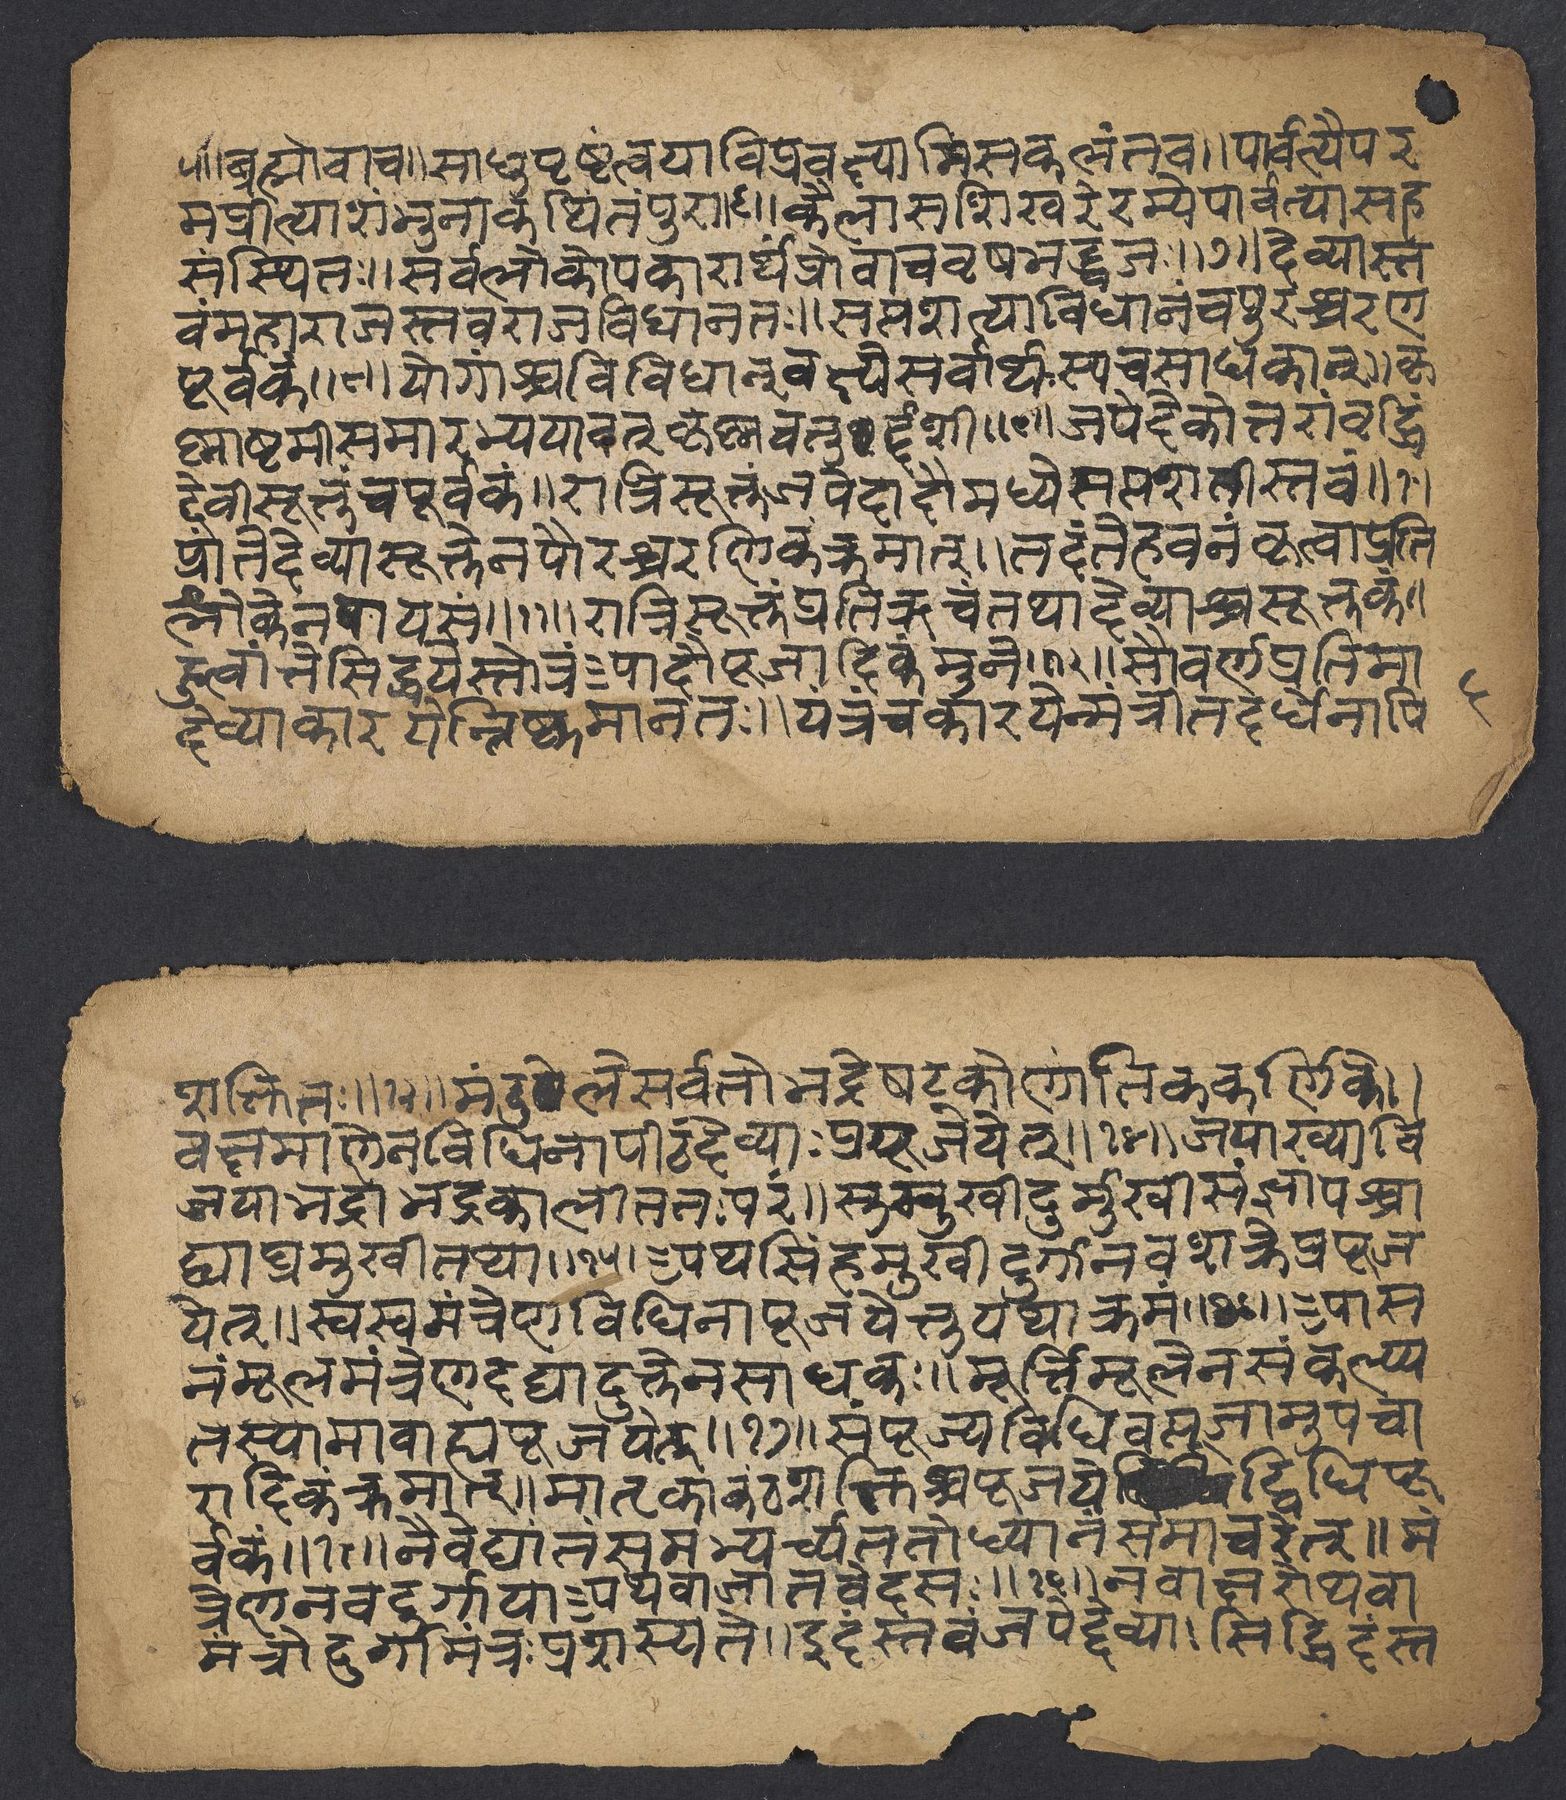 ५॥ब्रह्मोवाच॥साधुपृष्टंत्वयाविप्रवक्ष्यामिसकलंतव॥पार्वत्यैपर
मप्रीत्याशंभुनाकथितंपुरा॥६॥कैलासशिखरेरम्येपार्वत्यासह
संस्थितः॥सर्वलोकोपकारार्थंप्रोवाचवृषभद्ध्वजः॥७॥देव्यास्त
वंमहाराजस्तवराजविधानतः॥सप्तशत्याविधानंचपुरश्चरण
पूर्वकं॥८॥योगांश्चविविधान्वक्ष्येसर्वार्थस्यचसाधकान्॥कृ
ष्णाष्टमीसमारभ्ययावत्कृष्णचतुर्दशी॥९॥जपेदेकोत्तरांवृद्धिं
देवीसूक्तंचपूर्वकं॥रात्रिसूक्तंजपेदादौमध्येसप्तशतीस्तवं॥१०॥
प्रांतेदेव्यासूक्तेनपौरश्चरणिकंक्रमात्॥तदंतेहवनंकृत्वाप्रति
श्लोकेनपायसं॥११॥रात्रिसूक्तंप्रतिऋचंतथादेव्याश्चसूक्तकं॥
हुत्वांत्तेसिद्धयेस्तोत्रंआपादौपूजादिकंमुने॥१२॥सौवर्णप्रतिमा
देव्याकारयेन्निष्कमानतः॥यंत्रंचकारयेन्मंत्रीतदर्धेनापि
६
शक्तितः॥१३॥मंडलेसर्वतोभद्रेषटकोणांतिककर्णिके॥
वक्ष्यमाणेनविधिनापीठंदेव्याःप्रपूजयेत्॥१४॥जपाख्यावि
जयाभद्राभद्रकालीततःपरं॥सुमुखीदुर्मुखीसंज्ञापश्चा
द्व्याघ्रमुखीतथा॥१५॥अथसिंहमुखीदुर्गानवशक्तैप्रपूज
येत्॥स्वस्वमंत्रेणविधिनापूजयेत्तुयथाक्रमं॥१६॥आस
नंमूलमंत्रेणदद्यादुक्तेनसाधकः॥मूर्त्तिमूलेनसंकल्प्य
तस्यामावाह्यपूजयेत्॥१७॥संपूज्यविधिवत्पूजामुपचा
रादिकंक्रमात्॥मातृकाकंठशक्तिश्चपूजयेद्विधिपू
र्वकं॥१८॥नैवेद्यांतंसमभ्यर्च्यततोध्यानंसमाचरेत्॥मं
त्रेणनवदुर्गायाअथवाजातवेदसः॥१९॥नवाक्षरोथवा
मंत्रोदुर्गामंत्रःप्रशस्यते॥इदंस्तवंजपेद्देव्याःसिद्धिदंस्त